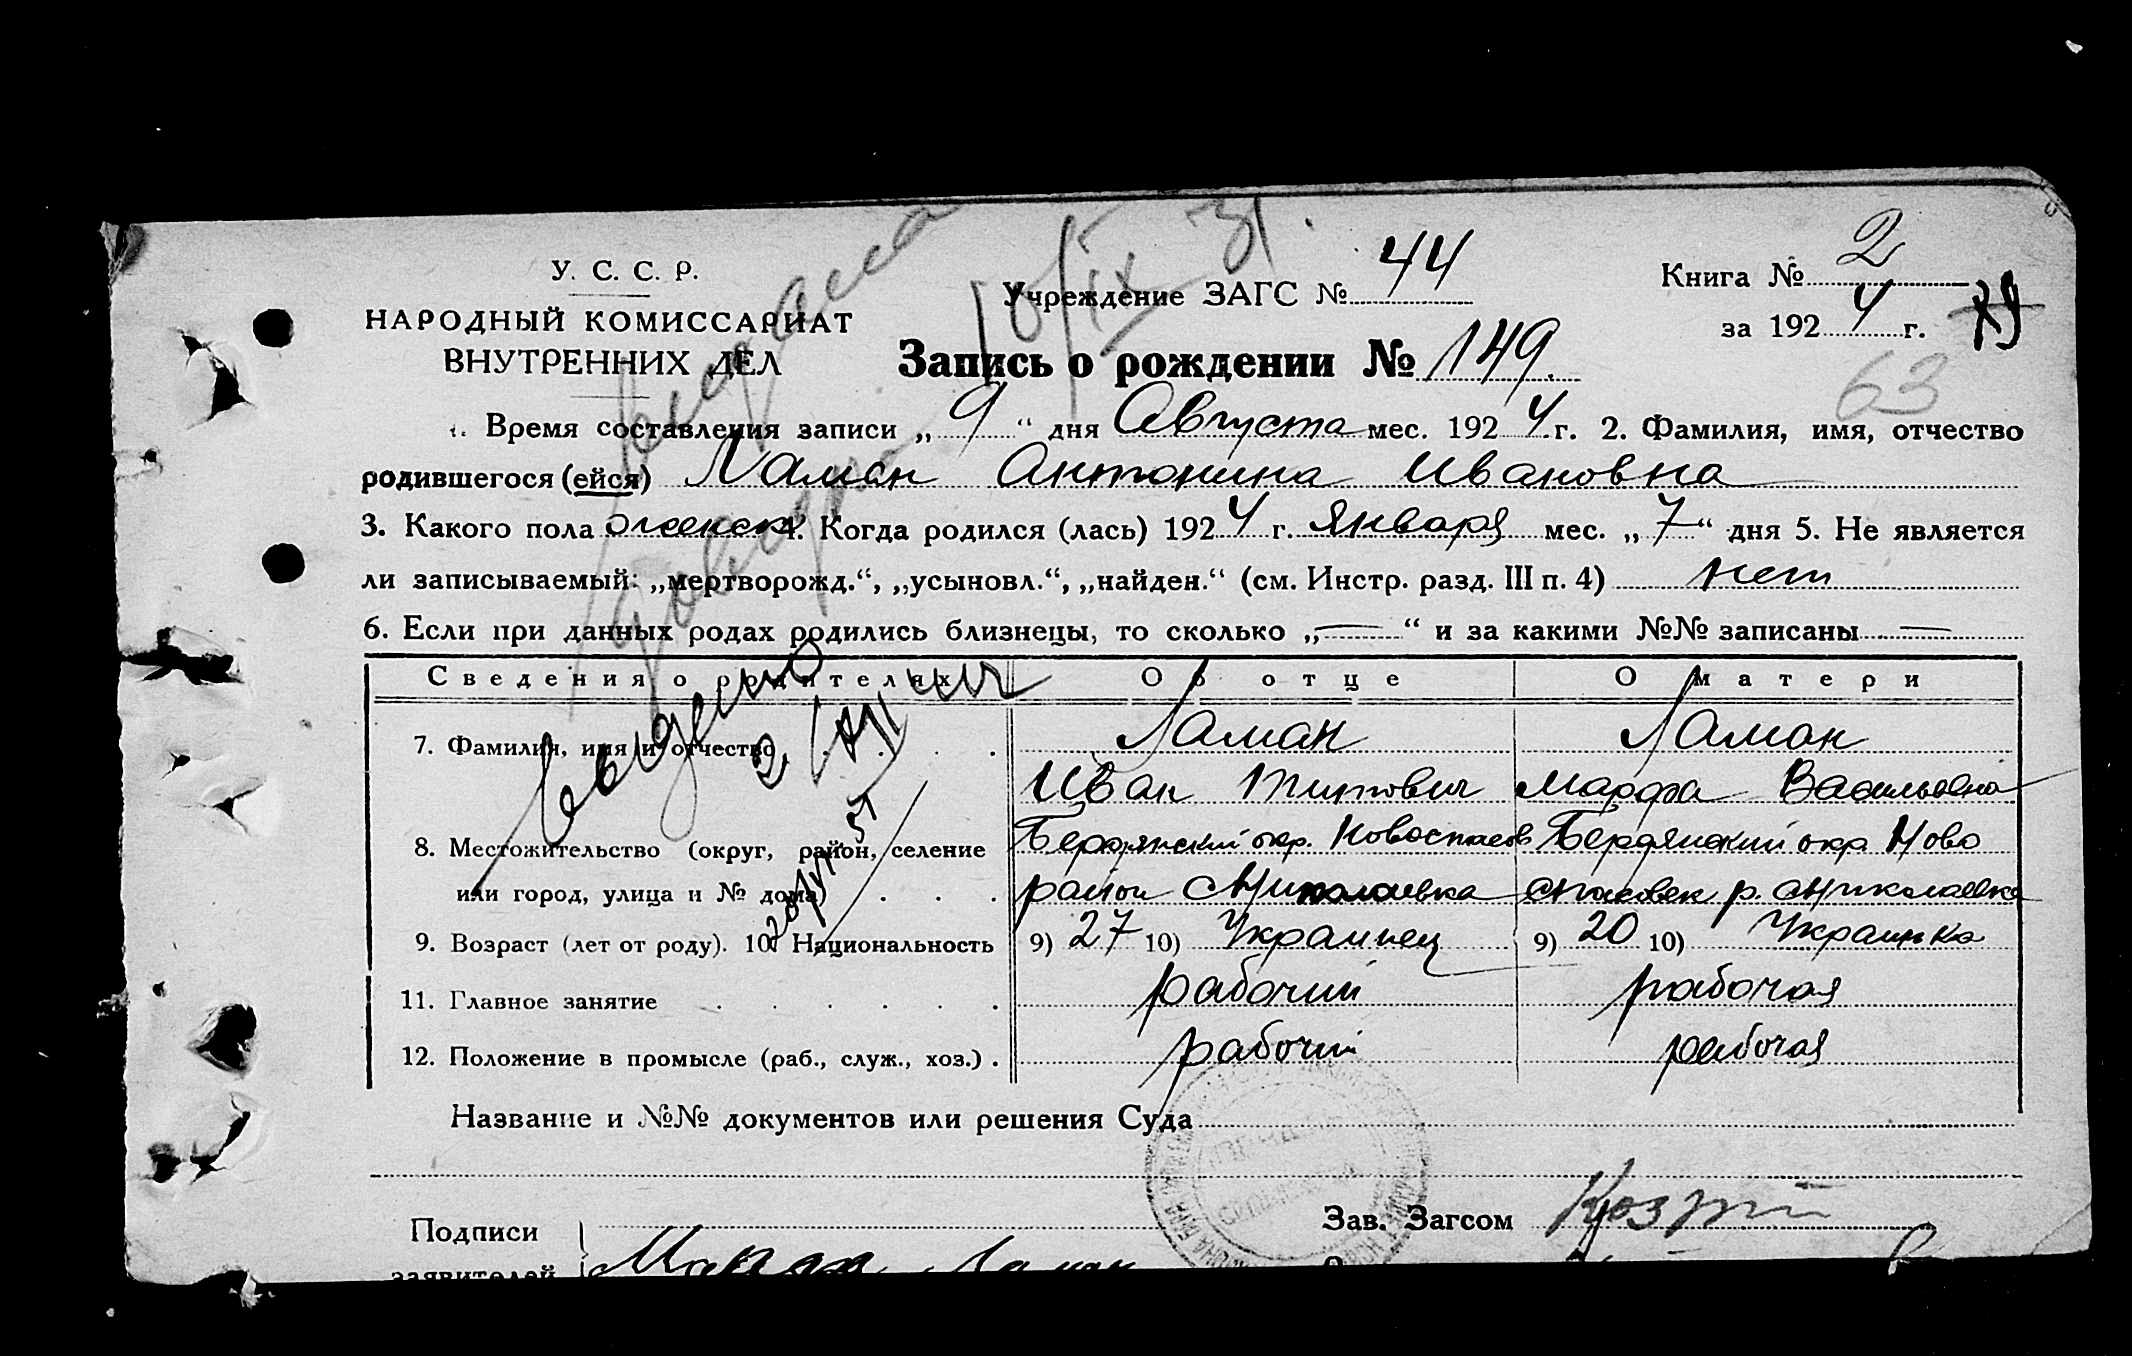 У. С. С. Р.
НАРОДНЫЙ КОМИССАРИАТ
ВНУТРЕННИХ ДЕЛ
Учреждение ЗАГС № 44
Книга № 2
за 192 4 г.
63
Запись о рождении № 149.
Время составления записи „ 9 “ дня Августа мес. 192 4 г. 2. Фамилия, имя, отчество
родившегося (ейся) Ламан Антонина Ивановна
3. Какого пола женск 4. Когда родился (лась) 192 4 г. Января мес. „ 7 “ дня 5. Не является
ли записываемый: „мертворожд.“, „усыновл.“, „найден.“ (см. Инстр. разд. III п. 4) нет
6. Если при данных родах родились близнецы, то сколько „ — “ и за какими №№ записаны —
Сведения о родителях Об отце О матери
7. Фамилия, имя и отчество . . . Ламан Ламан
Иван Титович Марфа Васильевна
8. Местожительство (округ, район, селение Бердянский окр. Новоспасов Бердянский окр Ново
или город, улица и № дома) . . . район Николаевка спасовск р. Николаевка
9. Возраст (лет от роду). 10. Национальность 9) 27 10) Украинец 9) 20 10) Украинка
11. Главное занятие . . . . . . рабочий рабочая
12. Положение в промысле (раб., служ., хоз.) . рабочий рабочая
Название и №№ документов или решения Суда
Подписи
заявителей
Ламан
Зав. Загсом